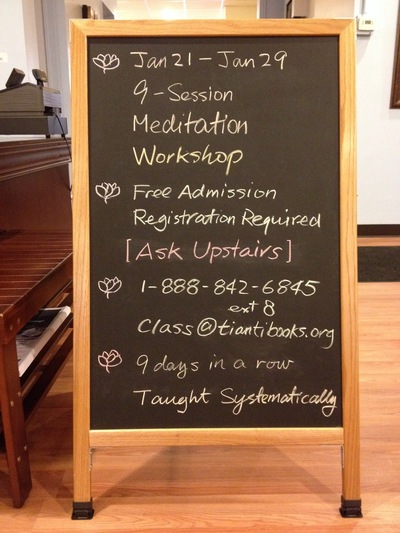 Jan 21 - Jan 29
9-Session
Meditation
Workshop
Free Admission
Registration Required
[Ask Upstairs]
1-888-842-6845
ext 8
Class@tiantibooks.org
9 days in a row
Taught Systematically